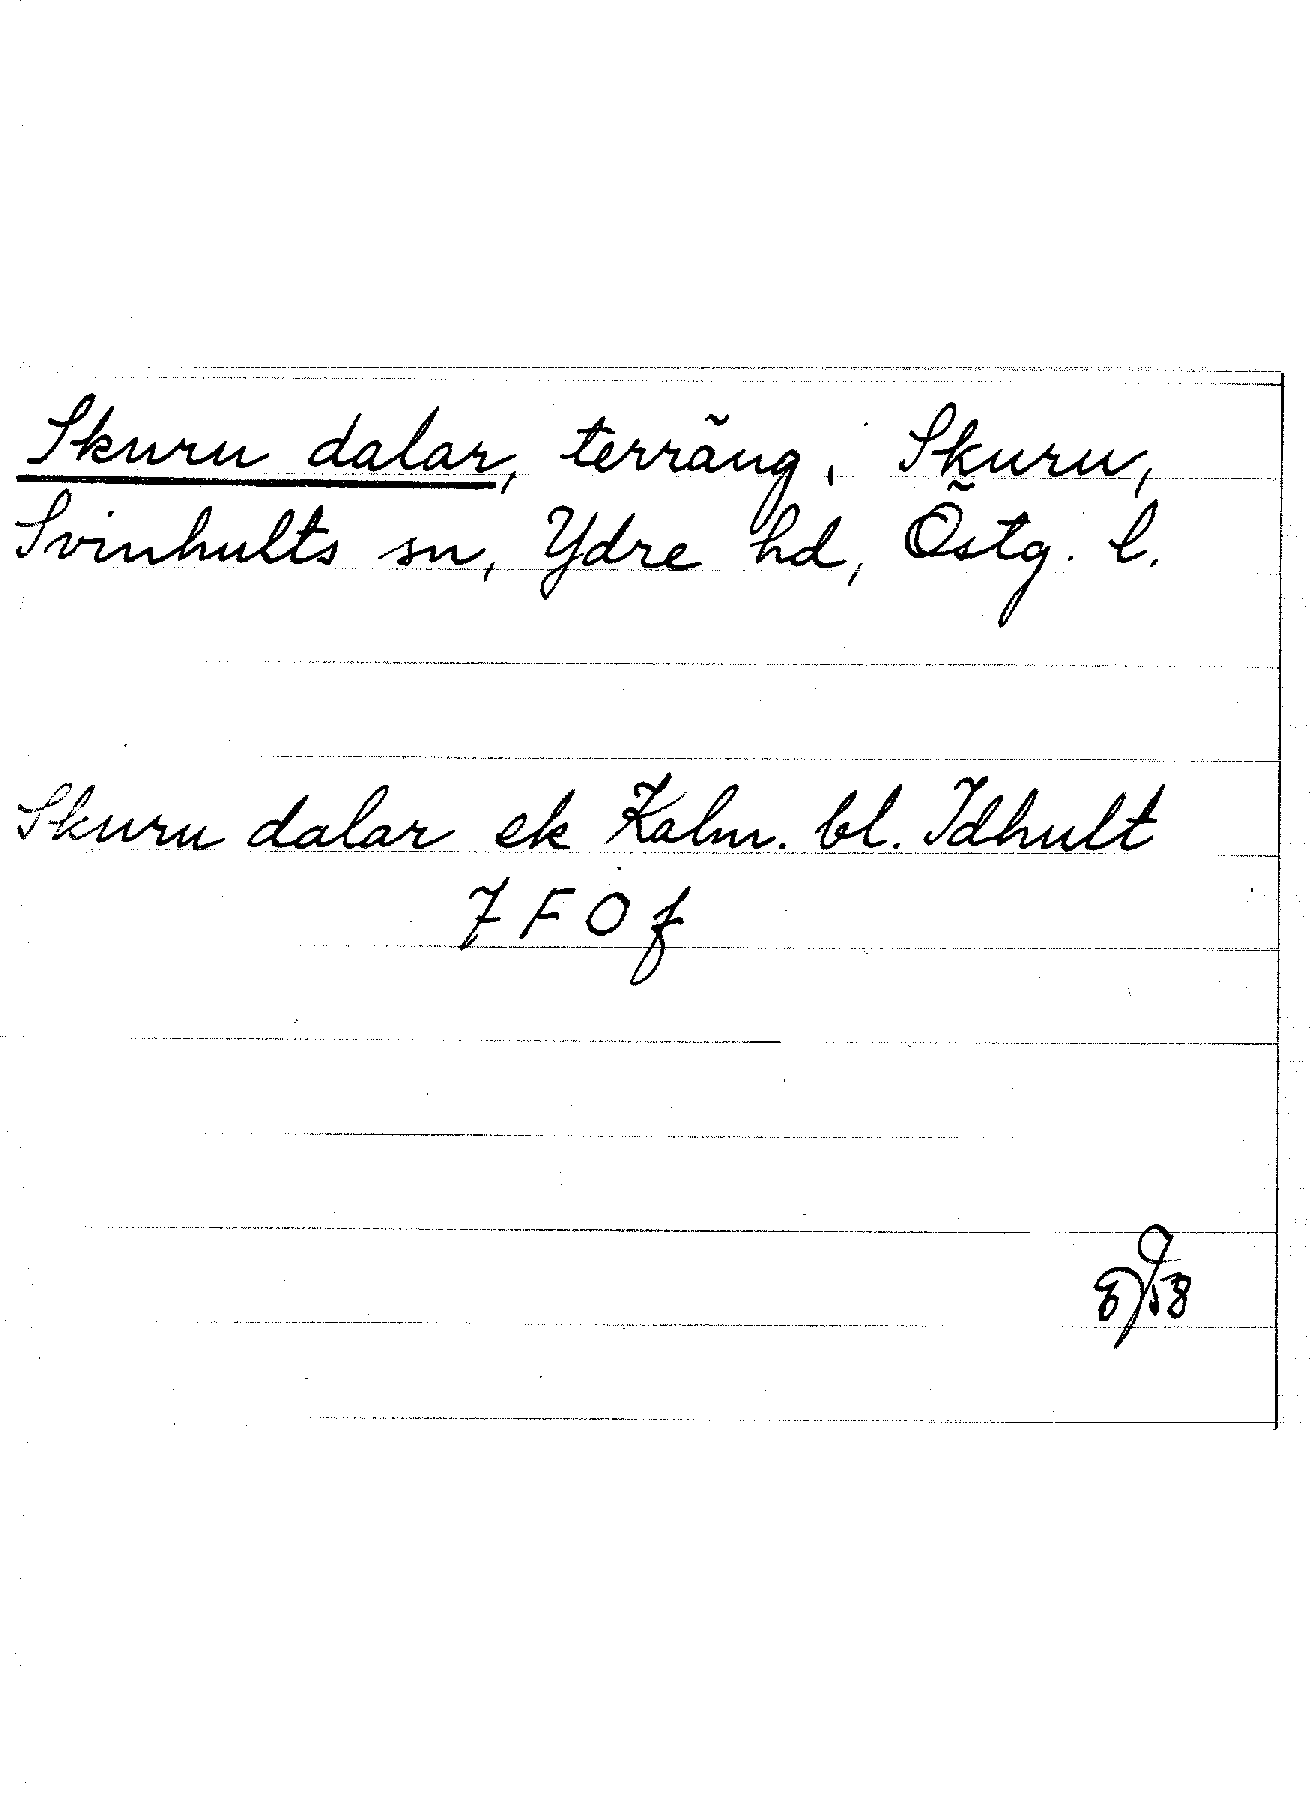 Skuru dalar, terräng, Skuru,
Svinhults sn, Ydre hd, Östg. l.
Skuru dalar ek Kalm. bl. Idhult
7 F 0 f